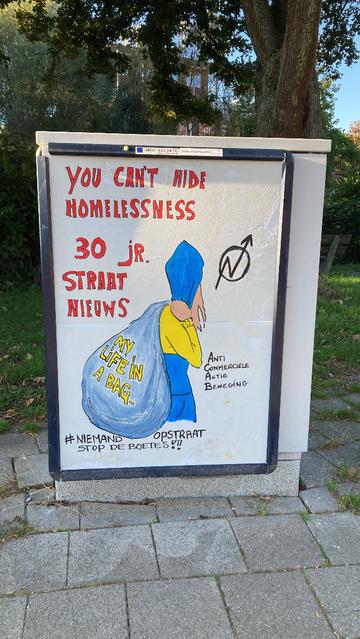 YOU CAN'T HIDE
HOMELESSNESS
30 jR.
STRAAT
NIEUWS
MY
LIFE IN
A BAG...
ANTI
COMMERCIËLE
ACTIE
BEWEGING
#NIEMAND OPSTRAAT
STOP DE BOETES!!!